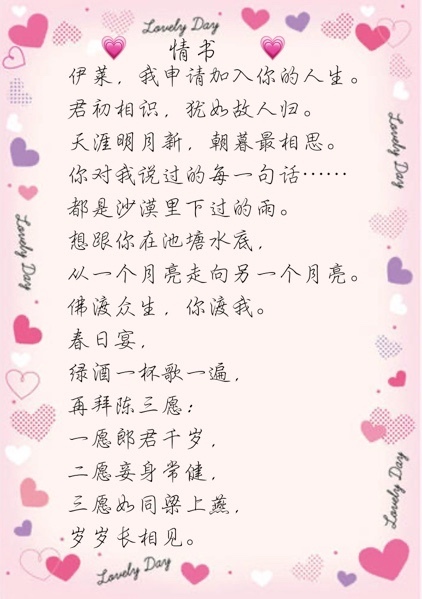 Lovely Day
情书
伊莱，我申请加入你的人生。
君初相识，犹如故人归。
天涯明月新，朝暮最相思。
你对我说过的每一句话……
都是沙漠里下过的雨。
想跟你在池塘水底，
从一个月亮走向另一个月亮。
佛渡众生，你渡我。
春日宴，
绿酒一杯歌一遍，
再拜陈三愿：
一愿郎君千岁，
二愿妾身常健，
三愿如同梁上燕，
岁岁长相见。
Lovely Day
Lovely Day
Lovely Day
Lovely Day